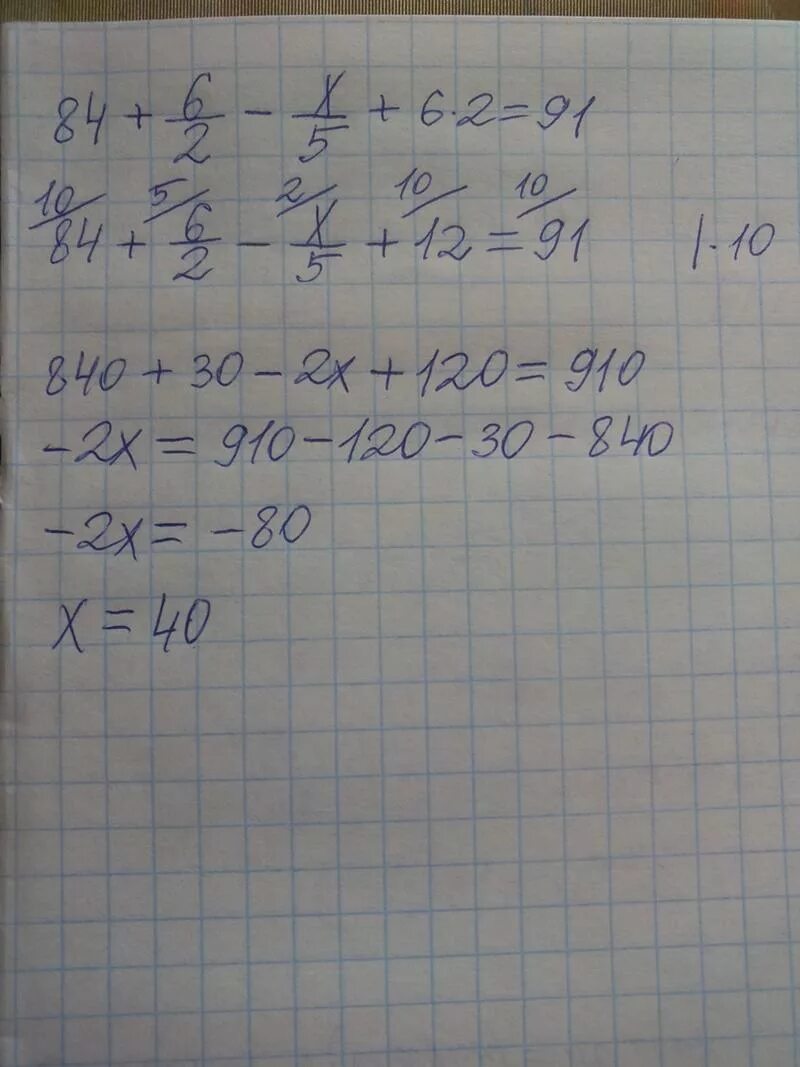 84 + 6/2 - x/5 + 6·2 = 91
10/ 5/ 2/ 10/ 10/
84 + 6/2 - x/5 + 12 = 91 |·10
840 + 30 - 2x + 120 = 910
-2x = 910 - 120 - 30 - 840
-2x = -80
x = 40